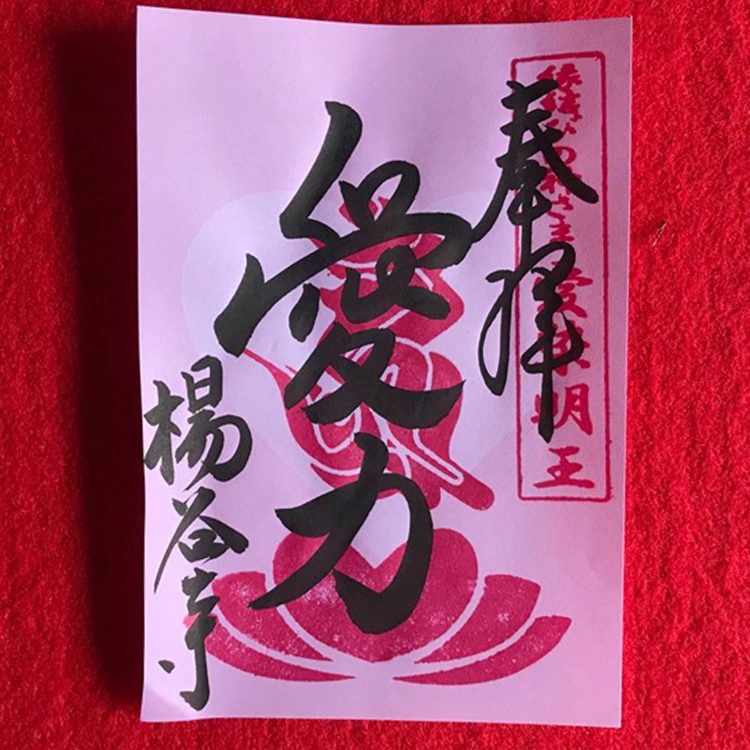 奉拝
縁結びの神さま 愛染明王
愛力
楊谷寺